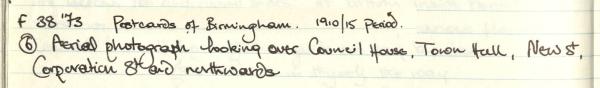 f 38 '73 Postcards of Birmingham. 1910/15 Period.
⑥ Aerial photograph looking over Council House, Town Hall, New St,
Corporation St and northwards